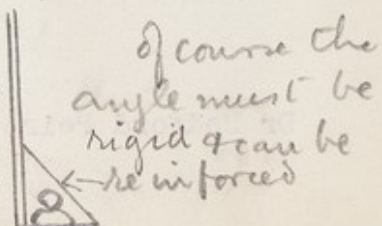 of course the
angle must be
rigid & can be
reinforced